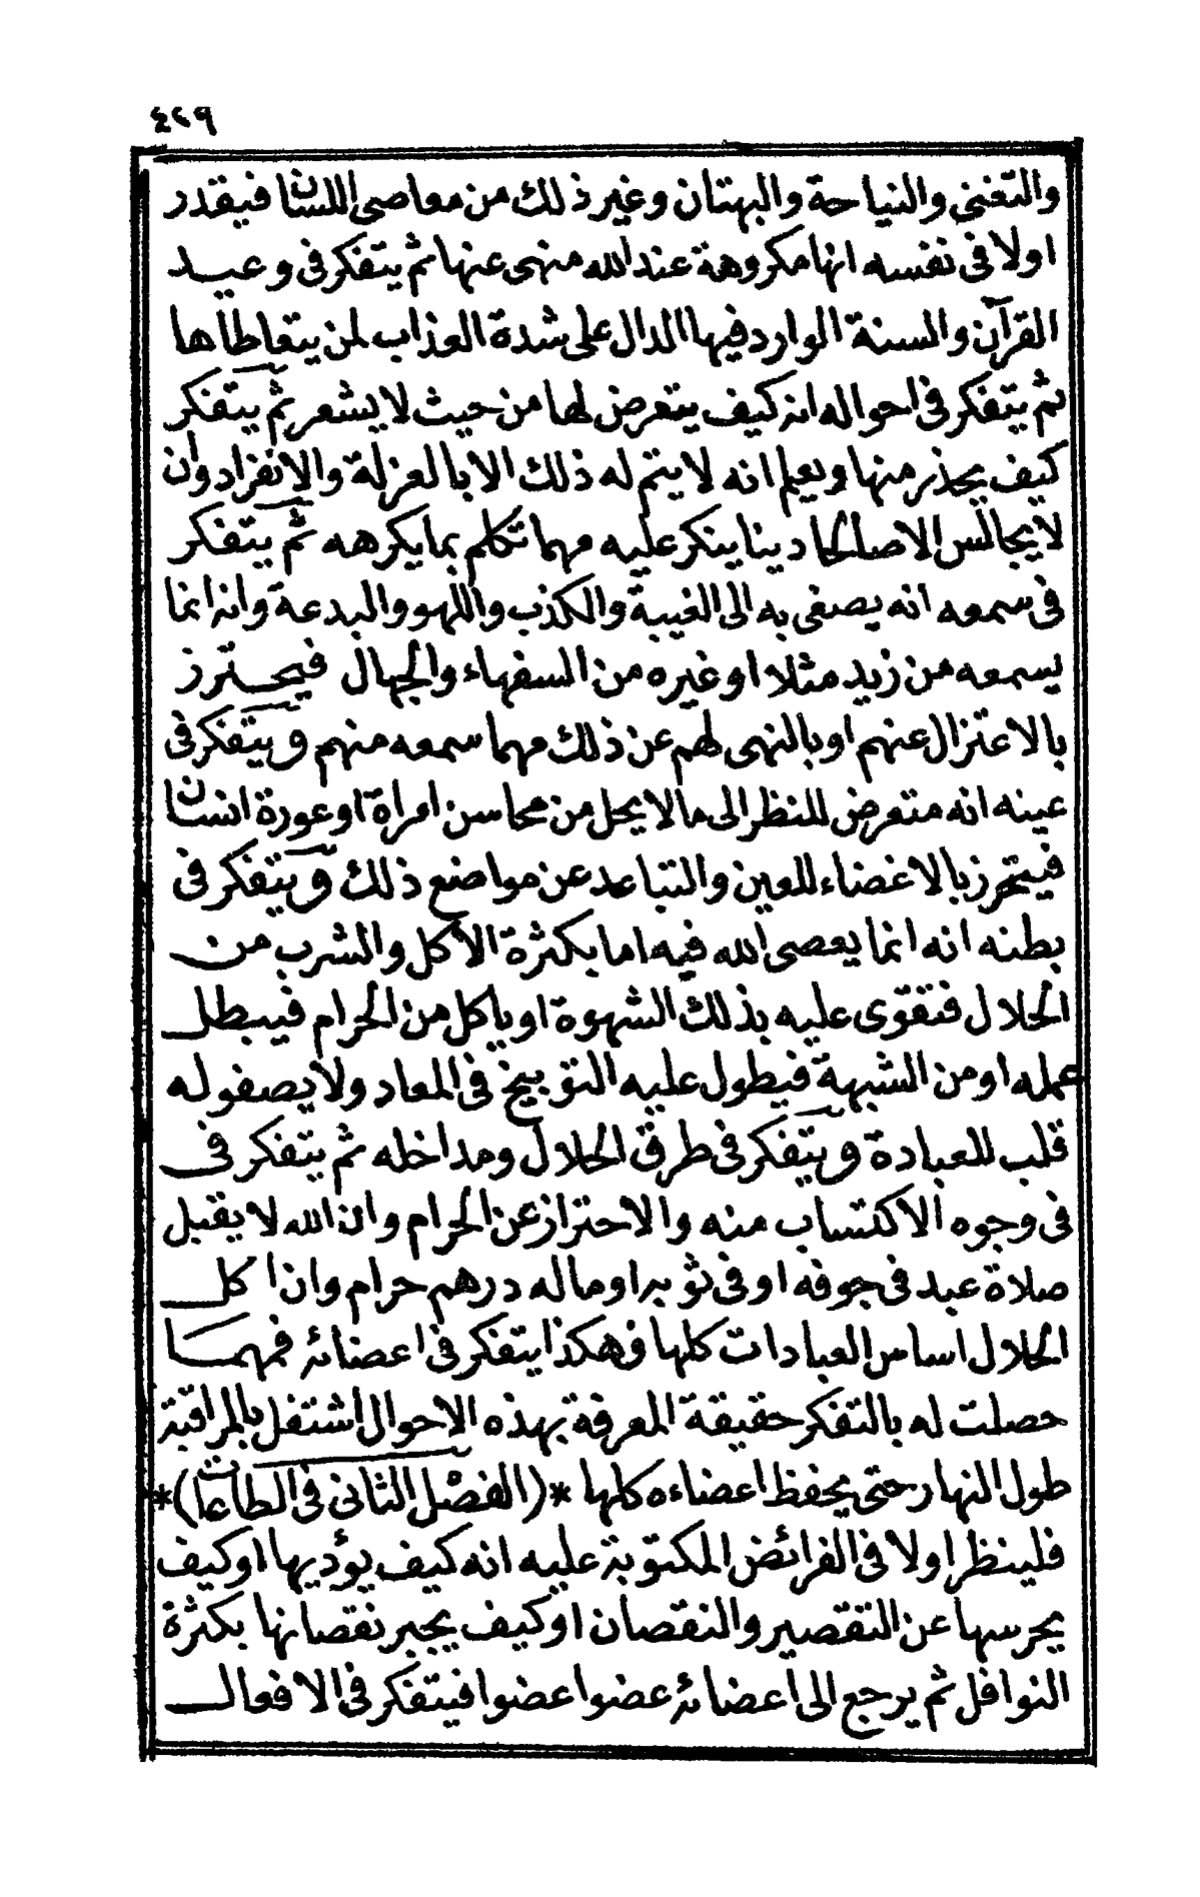 ٤٢٩
والتغنى والنياحة والبهتان وغير ذلك من معاصى اللسان فيقدر
اولا فى نفسه انها مكروهة عند الله منهى عنها ثم يتفكر فى وعيد
القرآن والسنة الوارد فيها الدال على شدة العذاب لمن يتعاطاها
ثم يتفكر فى احواله انه كيف يتعرض لها من حيث لا يشعر ثم يتفكر
كيف يحذر منها ويعلم انه لا يتم له ذلك الا بالعزلة والانفراد وان
لا يجالس الا صالحا دينا ينكر عليه مهما تكلم بما يكرهه ثم يتفكر
فى سمعه انه يصغى به الى الغيبة والكذب واللهو والبدعة وانه انما
يسمعه من زيد مثلا او غيره من السفهاء والجهال فيحترز
بالاعتزال عنهم او بالنهى لهم عن ذلك مهما سمعه منهم ويتفكر فى
عينه انه متعرض للنظر الى ما لا يحل من محاسن امراة او عورة انسان
فيتحرز بالاغضاء للعين والتباعد عن مواضع ذلك ويتفكر فى
بطنه انه انما يعصى الله فيه اما بكثرة الأكل والشرب من
الحلال فتقوى عليه بذلك الشهوة او ياكل من الحرام فيبطل
عمله او من الشبهة فيطول عليه التوبيخ فى المعاد ولا يصفو له
قلب للعبادة ويتفكر فى طرق الحلال ومداخله ثم يتفكر فى
فى وجوه الاكتساب منه والاحتراز عن الحرام وان الله لا يقبل
صلاة عبد فى جوفه او فى ثوبه او ماله درهم حرام وان اكل
الحلال اساس العبادات كلها وهكذا يتفكر فى اعضائه فمهما
حصلت له بالتفكر حقيقة المعرفة بهذه الاحوال اشتغل بالمراقبة
طول النهار حتى يحفظ اعضاءه كلها *(الفصل الثانى فى الطاعات)*
فلينظر اولا فى الفرائض المكتوبة عليه انه كيف يؤديها او كيف
يحرسها عن التقصير والنقصان او كيف يجبر نقصانها بكثرة
النوافل ثم يرجع الى اعضائه عضوا عضوا فيتفكر فى الافعال